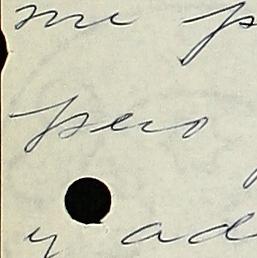 me p
pero
y ad